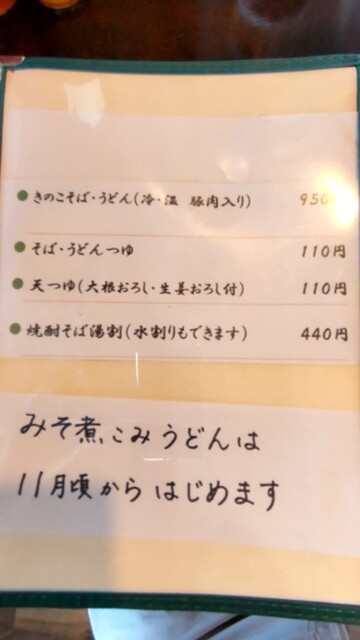 ●きのこそば・うどん(冷・温 豚肉入り) 950
●そば・うどんつゆ 110円
●天つゆ(大根おろし・生姜おろし付) 110円
●焼酎そば湯割(水割りもできます) 440円
みそ煮こみうどんは
11月頃からはじめます